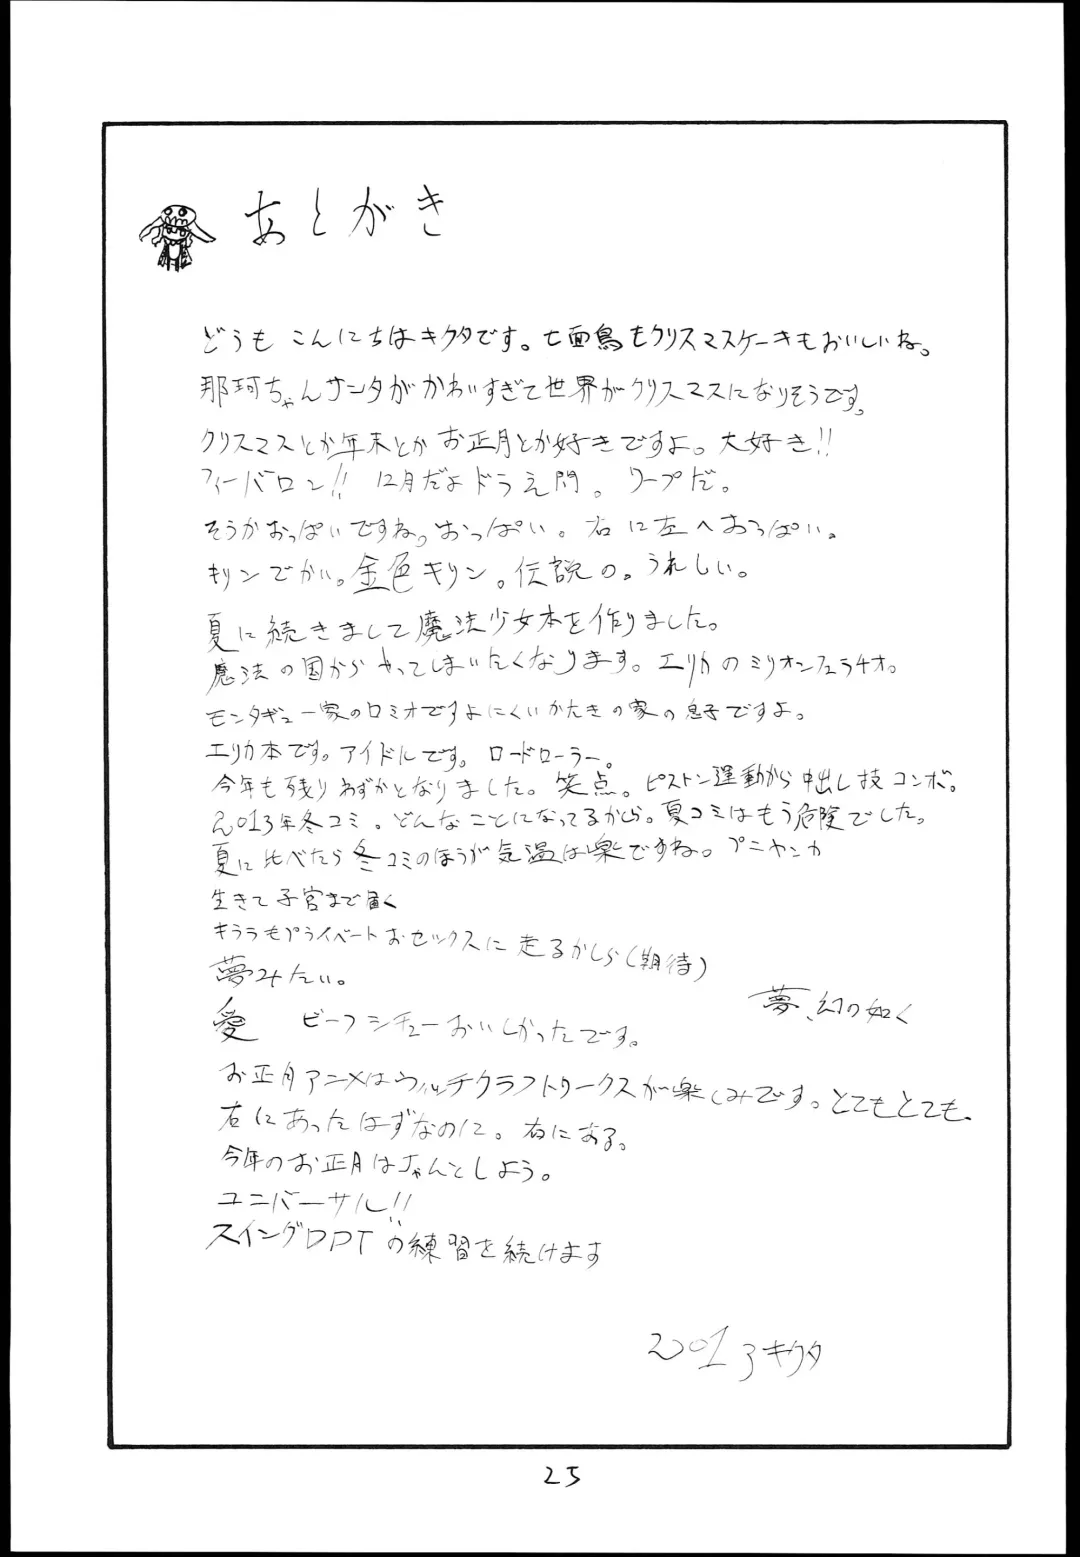 あとがき
どうも こんにちはキクタです。七面鳥もクリスマスケーキもおいしいね。
那珂ちゃんサンタがかわいすぎて世界がクリスマスになりそうです。
クリスマスとか年末とか お正月とか好きですよ。大好き!!
フィーバロン!! 12月だよドラえ門。ワープだ。
そうかおっぱいですね。おっぱい。右に左へおっぱい。
キリンでかい。金色キリン。伝説の。うれしい。
夏に続きまして魔法少女本を作りました。
魔法の国からやってしまいたくなります。エリカのミリオンフェラチオ。
モンタギュー家のロミオですよにくいかたきの家の息子ですよ。
エリカ本です。アイドルです。ロードローラー。
今年も残りわずかとなりました。笑点。ピストン運動から中出し技コンボ。
2013年冬コミ。どんなことになってるかしら。夏コミはもう危険でした。
夏に比べたら冬コミのほうが気温は楽ですね。プニャンカ
生きて子宮まで届く
キララもプライベートおセックスに走るかしら(期待)
夢みたい。
夢、幻の如く
愛 ビーフシチューおいしかったです。
お正月アニメはウィッチクラフトワークスが楽しみです。とてもとても。
右にあったはずなのに。右にある。
今年のお正月はちゃんとしよう。
ユニバーサル!!
スイングDDTの練習を続けます
2013 キクタ
25